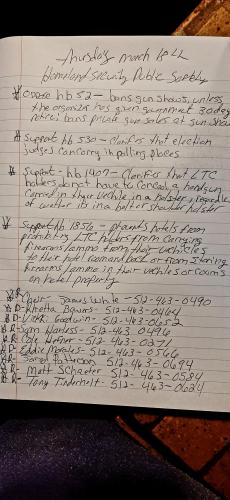 Thursday march 11
Homeland security Public Safety
Oppose hb 52 - bans gun shows, unless
the organizer has given government 30 day
notice; bans private gun sales at gun show
Support hb 530 - Clarifies that election
judges can carry in polling places
Support - hb 1407 - Clarifies that LTC
holders do not have to conceal a handgun
carried in their vechile in a holster, regardless
of wether its in a belt or shoulder holster
Support hb 1856 - prevents hotels from
prohibiting LTC holders from carrying
firearms/ammo from their vechicles
to their hotel room and back or from storing
firearms/ammo in their vechiles or rooms
on hotel property
R Chair - James White - 512-463-0490
D - Rhetta Bowers - 512-463-0464
D - Vikki Goodwin - 512-463-0652
R - Sam Harless - 512-463-0496
R - Cole Hefner - 512-463-0271
D - Eddie Morales - 512-463-0566
R - Jared Patterson - 512-463-0694
R - Matt Schaefer 512-463-0584
R - Tony Tinderholt - 512-463-0624